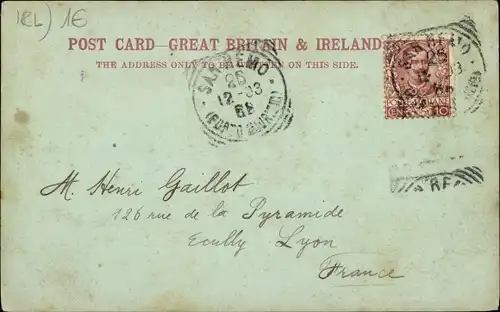 (RL) 1€
POST CARD—GREAT BRITAIN & IRELAND
THE ADDRESS ONLY TO BE WRITTEN ON THIS SIDE.
SAN REMO
26
12-03
6S
(PORTO MAURIZIO)
10
M. Henri Gaillot
126 rue de la Pyramide
Ecully Lyon
France